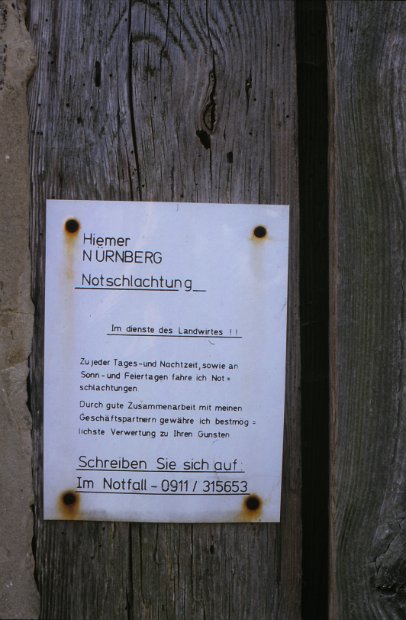 Hiemer
NÜRNBERG
Notschlachtung
Im dienste des Landwirtes !!
Zu jeder Tages-und Nachtzeit, sowie an
Sonn-und Feiertagen fahre ich Not=
schlachtungen.
Durch gute Zusammenarbeit mit meinen
Geschäftspartnern gewähre ich bestmög=
lichste Verwertung zu Ihren Gunsten
Schreiben Sie sich auf:
Im Notfall - 0911/ 315653